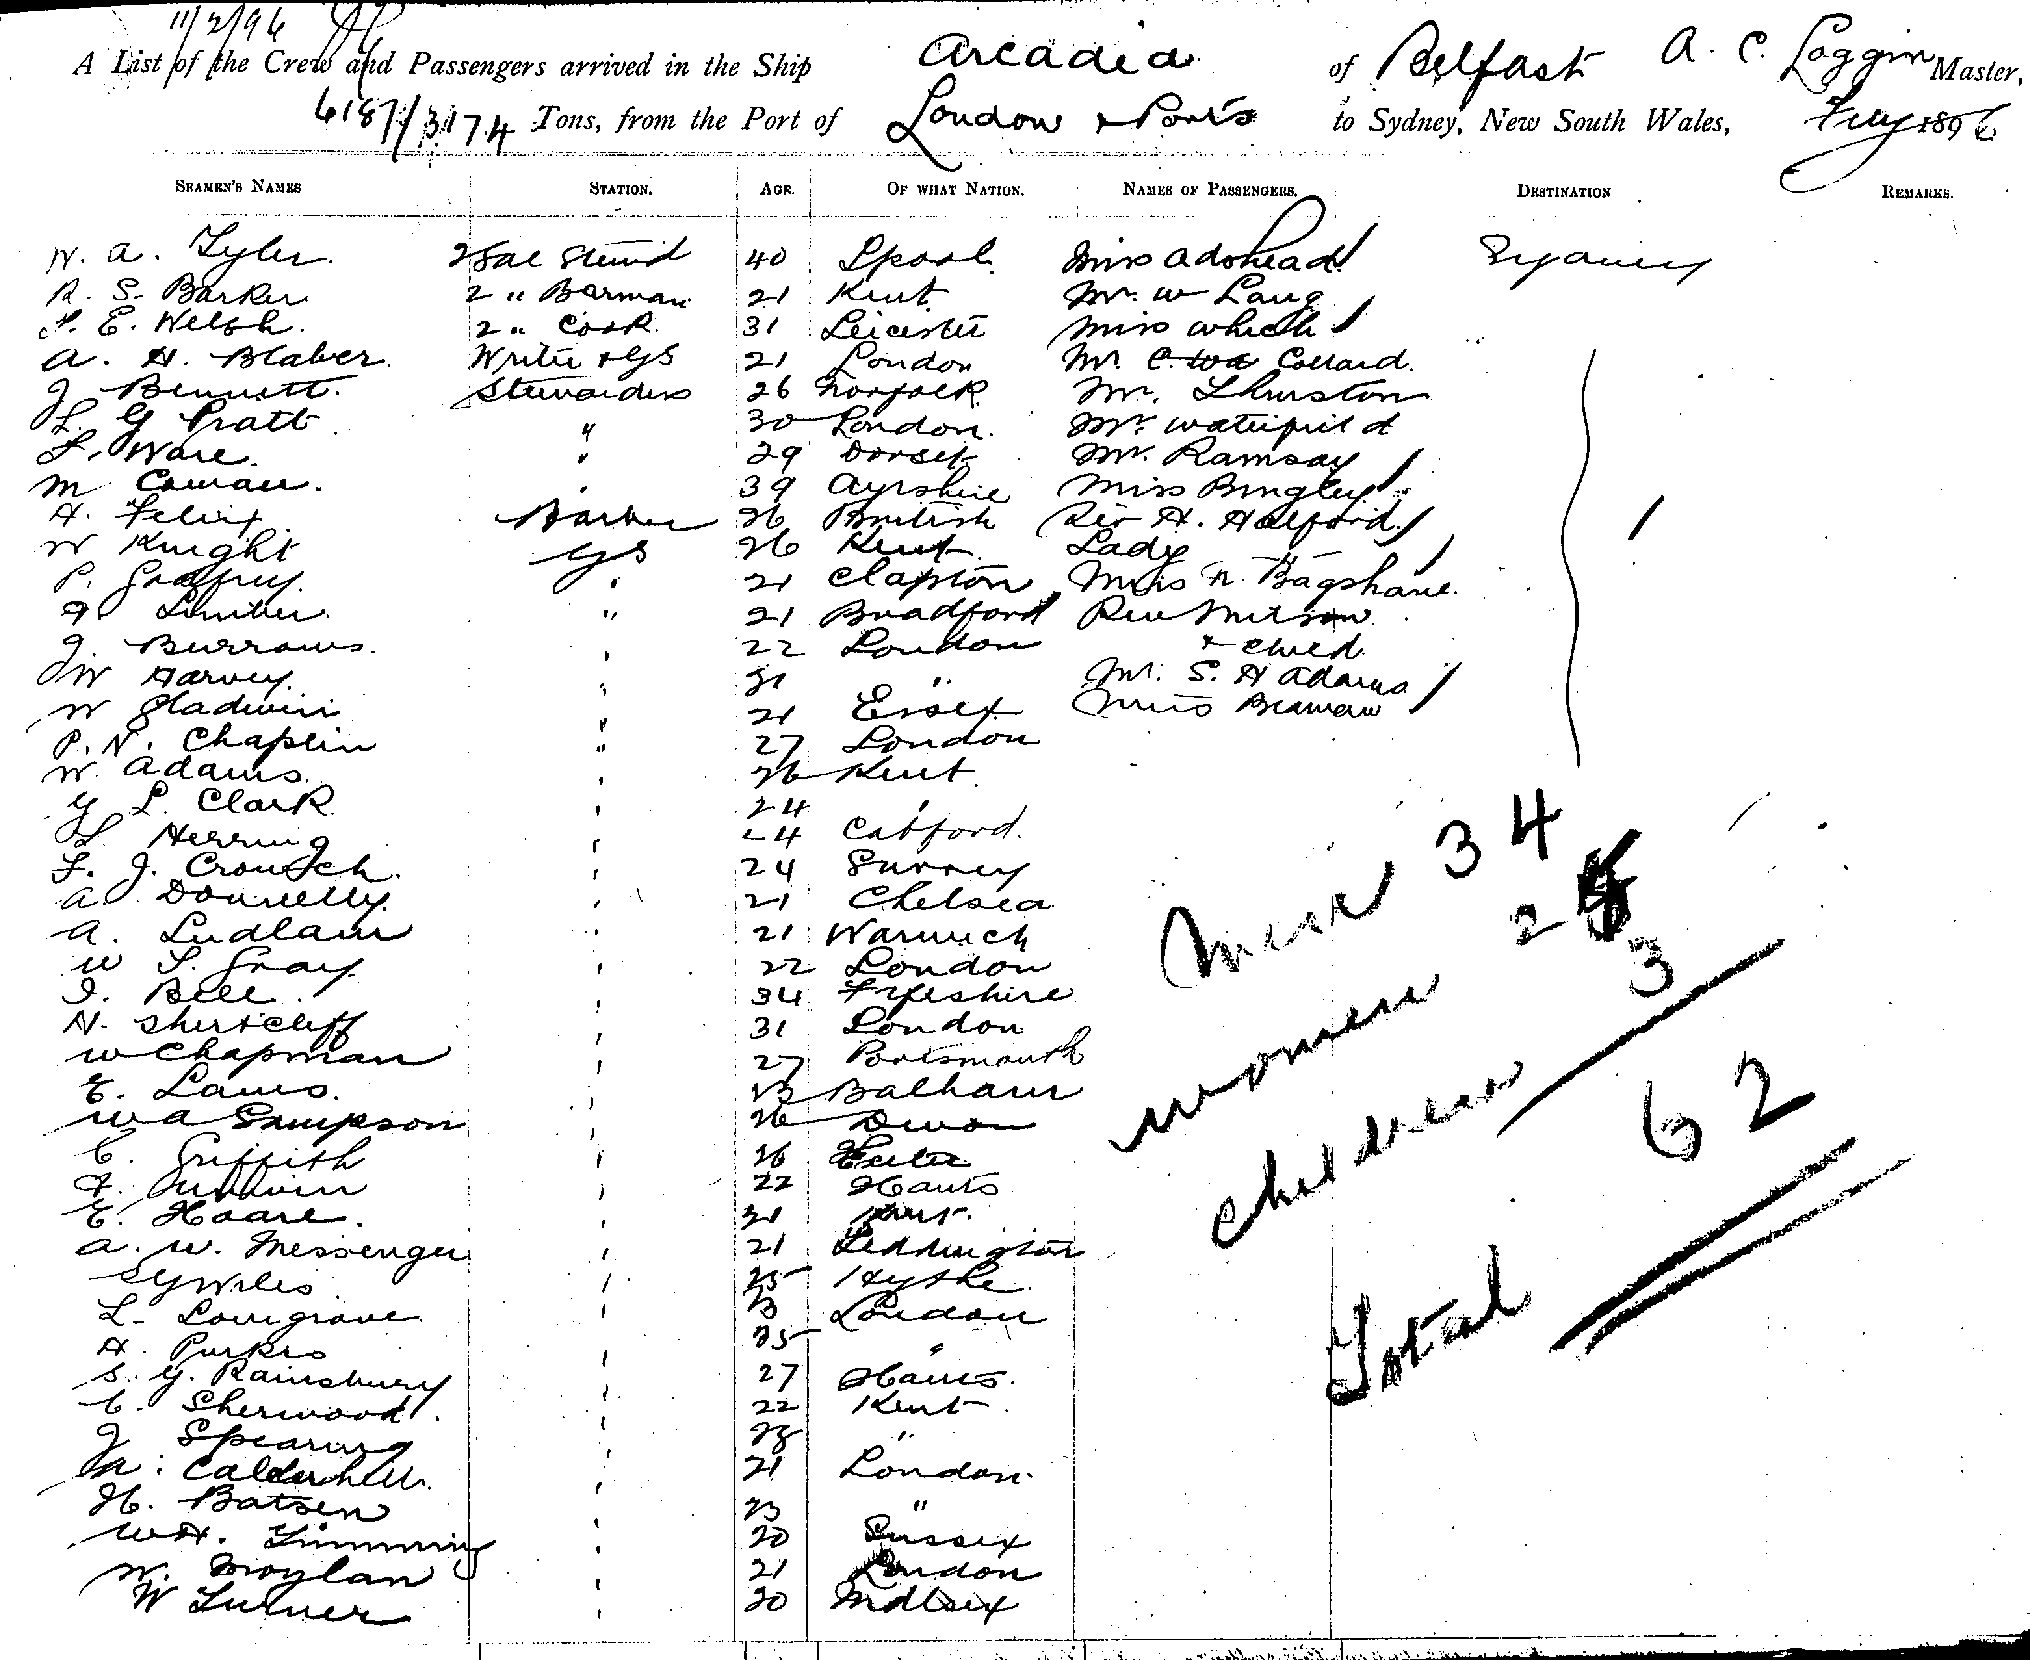 11/2/96
A List of the Crew and Passengers arrived in the Ship Arcadia of Belfast A. C. Loggin Master,
6187/3174 Tons, from the Port of London & Ports to Sydney, New South Wales, Feby 1896
SEAMEN'S NAMES STATION. AGE. OF WHAT NATION. NAMES OF PASSENGERS. DESTINATION REMARKS.
W. A. Tyler. 2 Sal Steward 40 Lpool. Miss Adshead Sydney
R. S. Barker 2 " Barman 21 Kent Mr. W Lang
T. E. Welsh. 2 " Cook 31 Leicester Miss
A. H. Blaber. Writer & GS 21 London Mr. Collard.
J Bennett. Stewardess 26 Norfolk Mr. Thurston
L. G Pratt " 30 London. Mr.
L. Ware. " 29 Dorset Mr. Ramsay
M Cowan. " 39 Ayrshire Miss Bingley
A. Felix Barber 26 British Sir H. Halford
W Knight GS 26 Kent Lady "
P. Godfrey. " 21 Clapton Miss N. Bagshawe.
" 21 Bradford Rev
J. Burrows. " 22 London & child
W Harvey. " 31 " Mr. S. H Adams
W Gladwin " 21 Essex Miss
P. N. Chaplin " 27 London
W. Adams. " 26 Kent
G L. Clark " 24 "
L Herring " 24 Catford.
F. J. Crowsch. " 24 Surrey
A Donnelly. " 21 Chelsea
A. Ludlam " 21 Warwick
W S. Gray. " 22 London
J. Bell. " 34 Fifeshire
H. Shertcliff " 31 London
W Chapman " 27 Portsmouth
E. Laws. " 23 Balham
W A Simpson " 26 Devon
C. Griffith " 26
" 22 Hants
E. Hoare. " 21 Kent.
A. W. Messenger " 21 Teddington
S G Wiles " 25 Hythe
L. Lovegrove " 23 London
A. Purkis " 25 "
S. G. Rainsbury " 27 Hants.
C. Sherwood. " 22 Kent
J Spearing " 23 "
" 21 London.
H. Batsen " 23 "
W H. Timming " 20 Sussex
W. Moylan " 21 London
W Turner " 20 Mdlsex
Men 34
Women 25
Children 3
Total 62